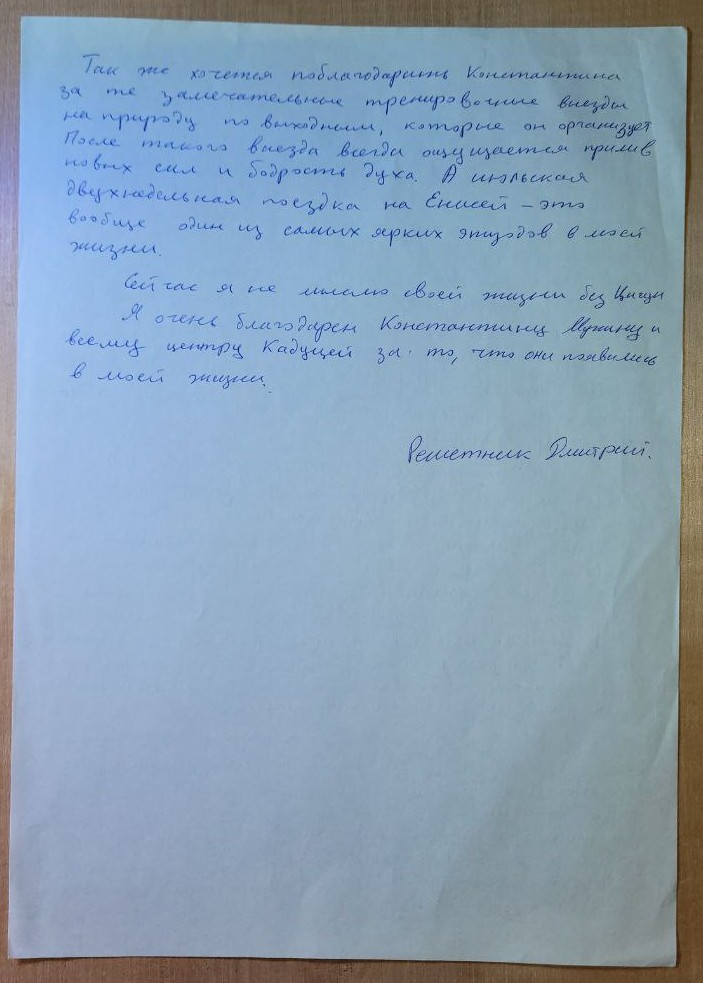 Так же хочется поблагодарить Константина
за те замечательные тренировочные выезды
на природу по выходным, которые он организует
После такого выезда всегда ощущается прилив
новых сил и бодрость духа. А июльская
двухнедельная поездка на Енисей – это
вообще один из самых ярких эпизодов в моей
жизни.
Сейчас я не мыслю своей жизни без
Я очень благодарен Константину и
всему центру Кадуцей за то, что они появились
в моей жизни.
Решетник Дмитрий.